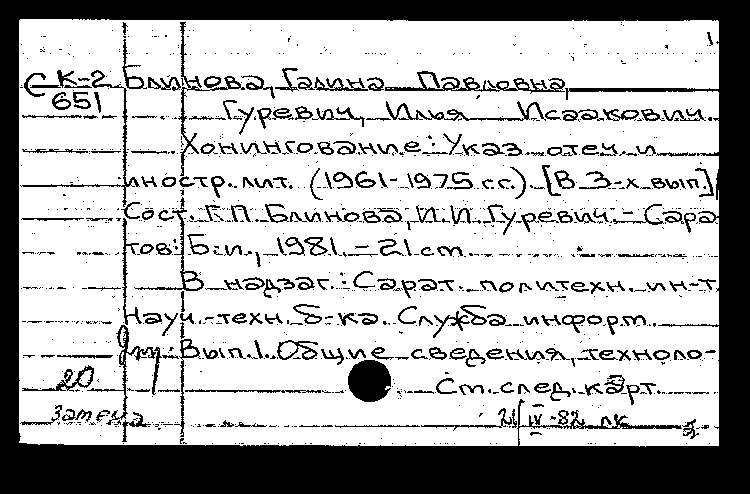 1.
С К-2 Блинова, Галина Павловна,
651 Гуревич, Илья Исаакович.
Хонингование: Указ. отеч. и
иностр. лит. (1961-1975 гг.). [В 3-х вып.]/
Сост. Г.П. Блинова, И.И. Гуревич. - Сара-
тов: Б.и., 1981. - 21 см.
В надзаг.: Сарат. политехн. ин-т.
Науч.-техн. б-ка. Служба информ.
Вып. 1. Общие сведения, техноло-
20 См. след. карт.
Замена 21/IV-82 лк